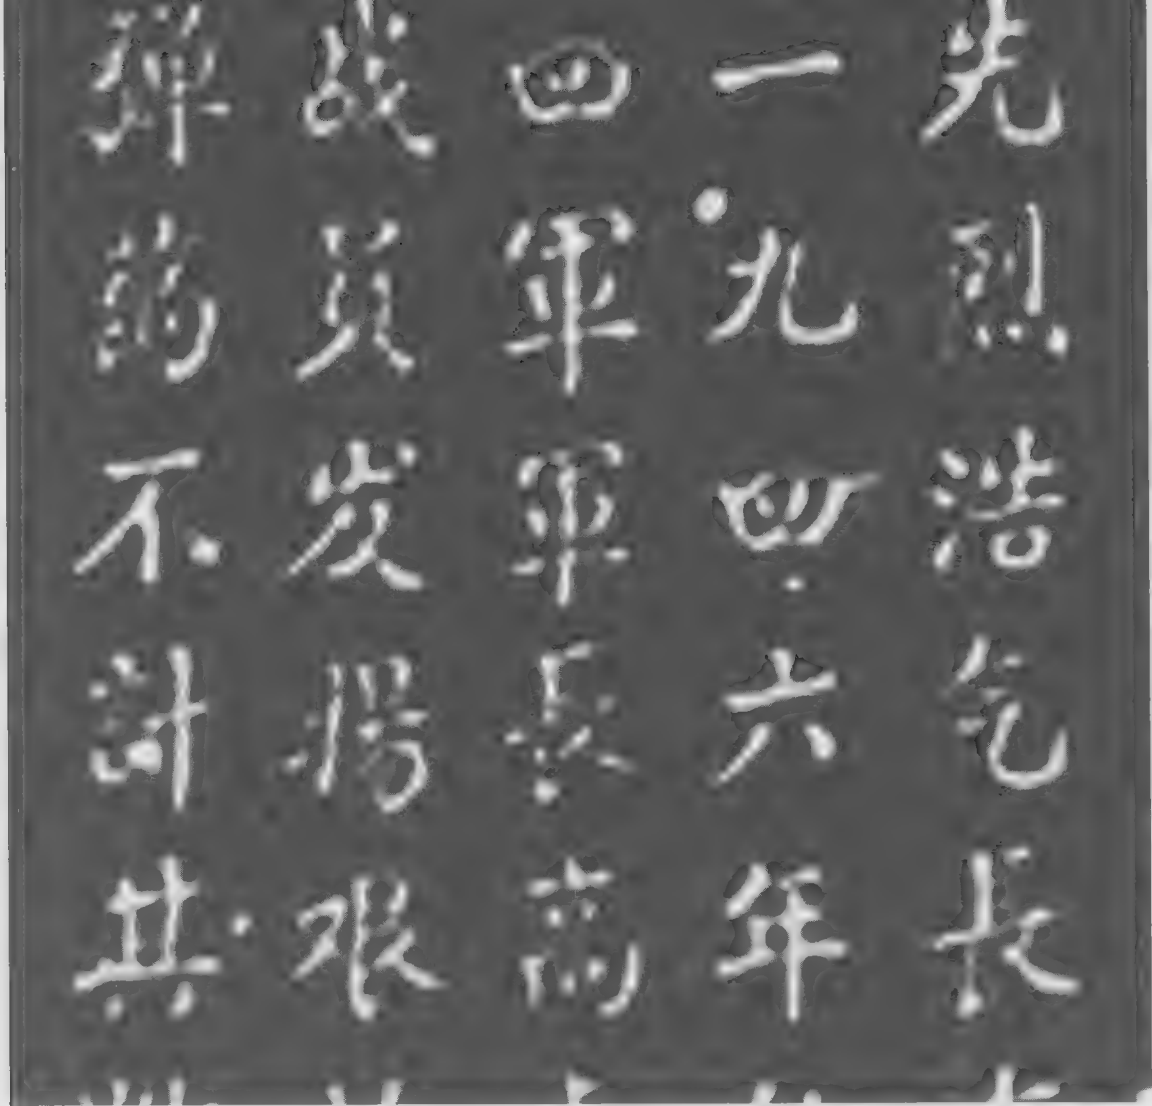 先烈浩气长
一九四六年
四軍軍長高
战员发揚艰
弹药不計其